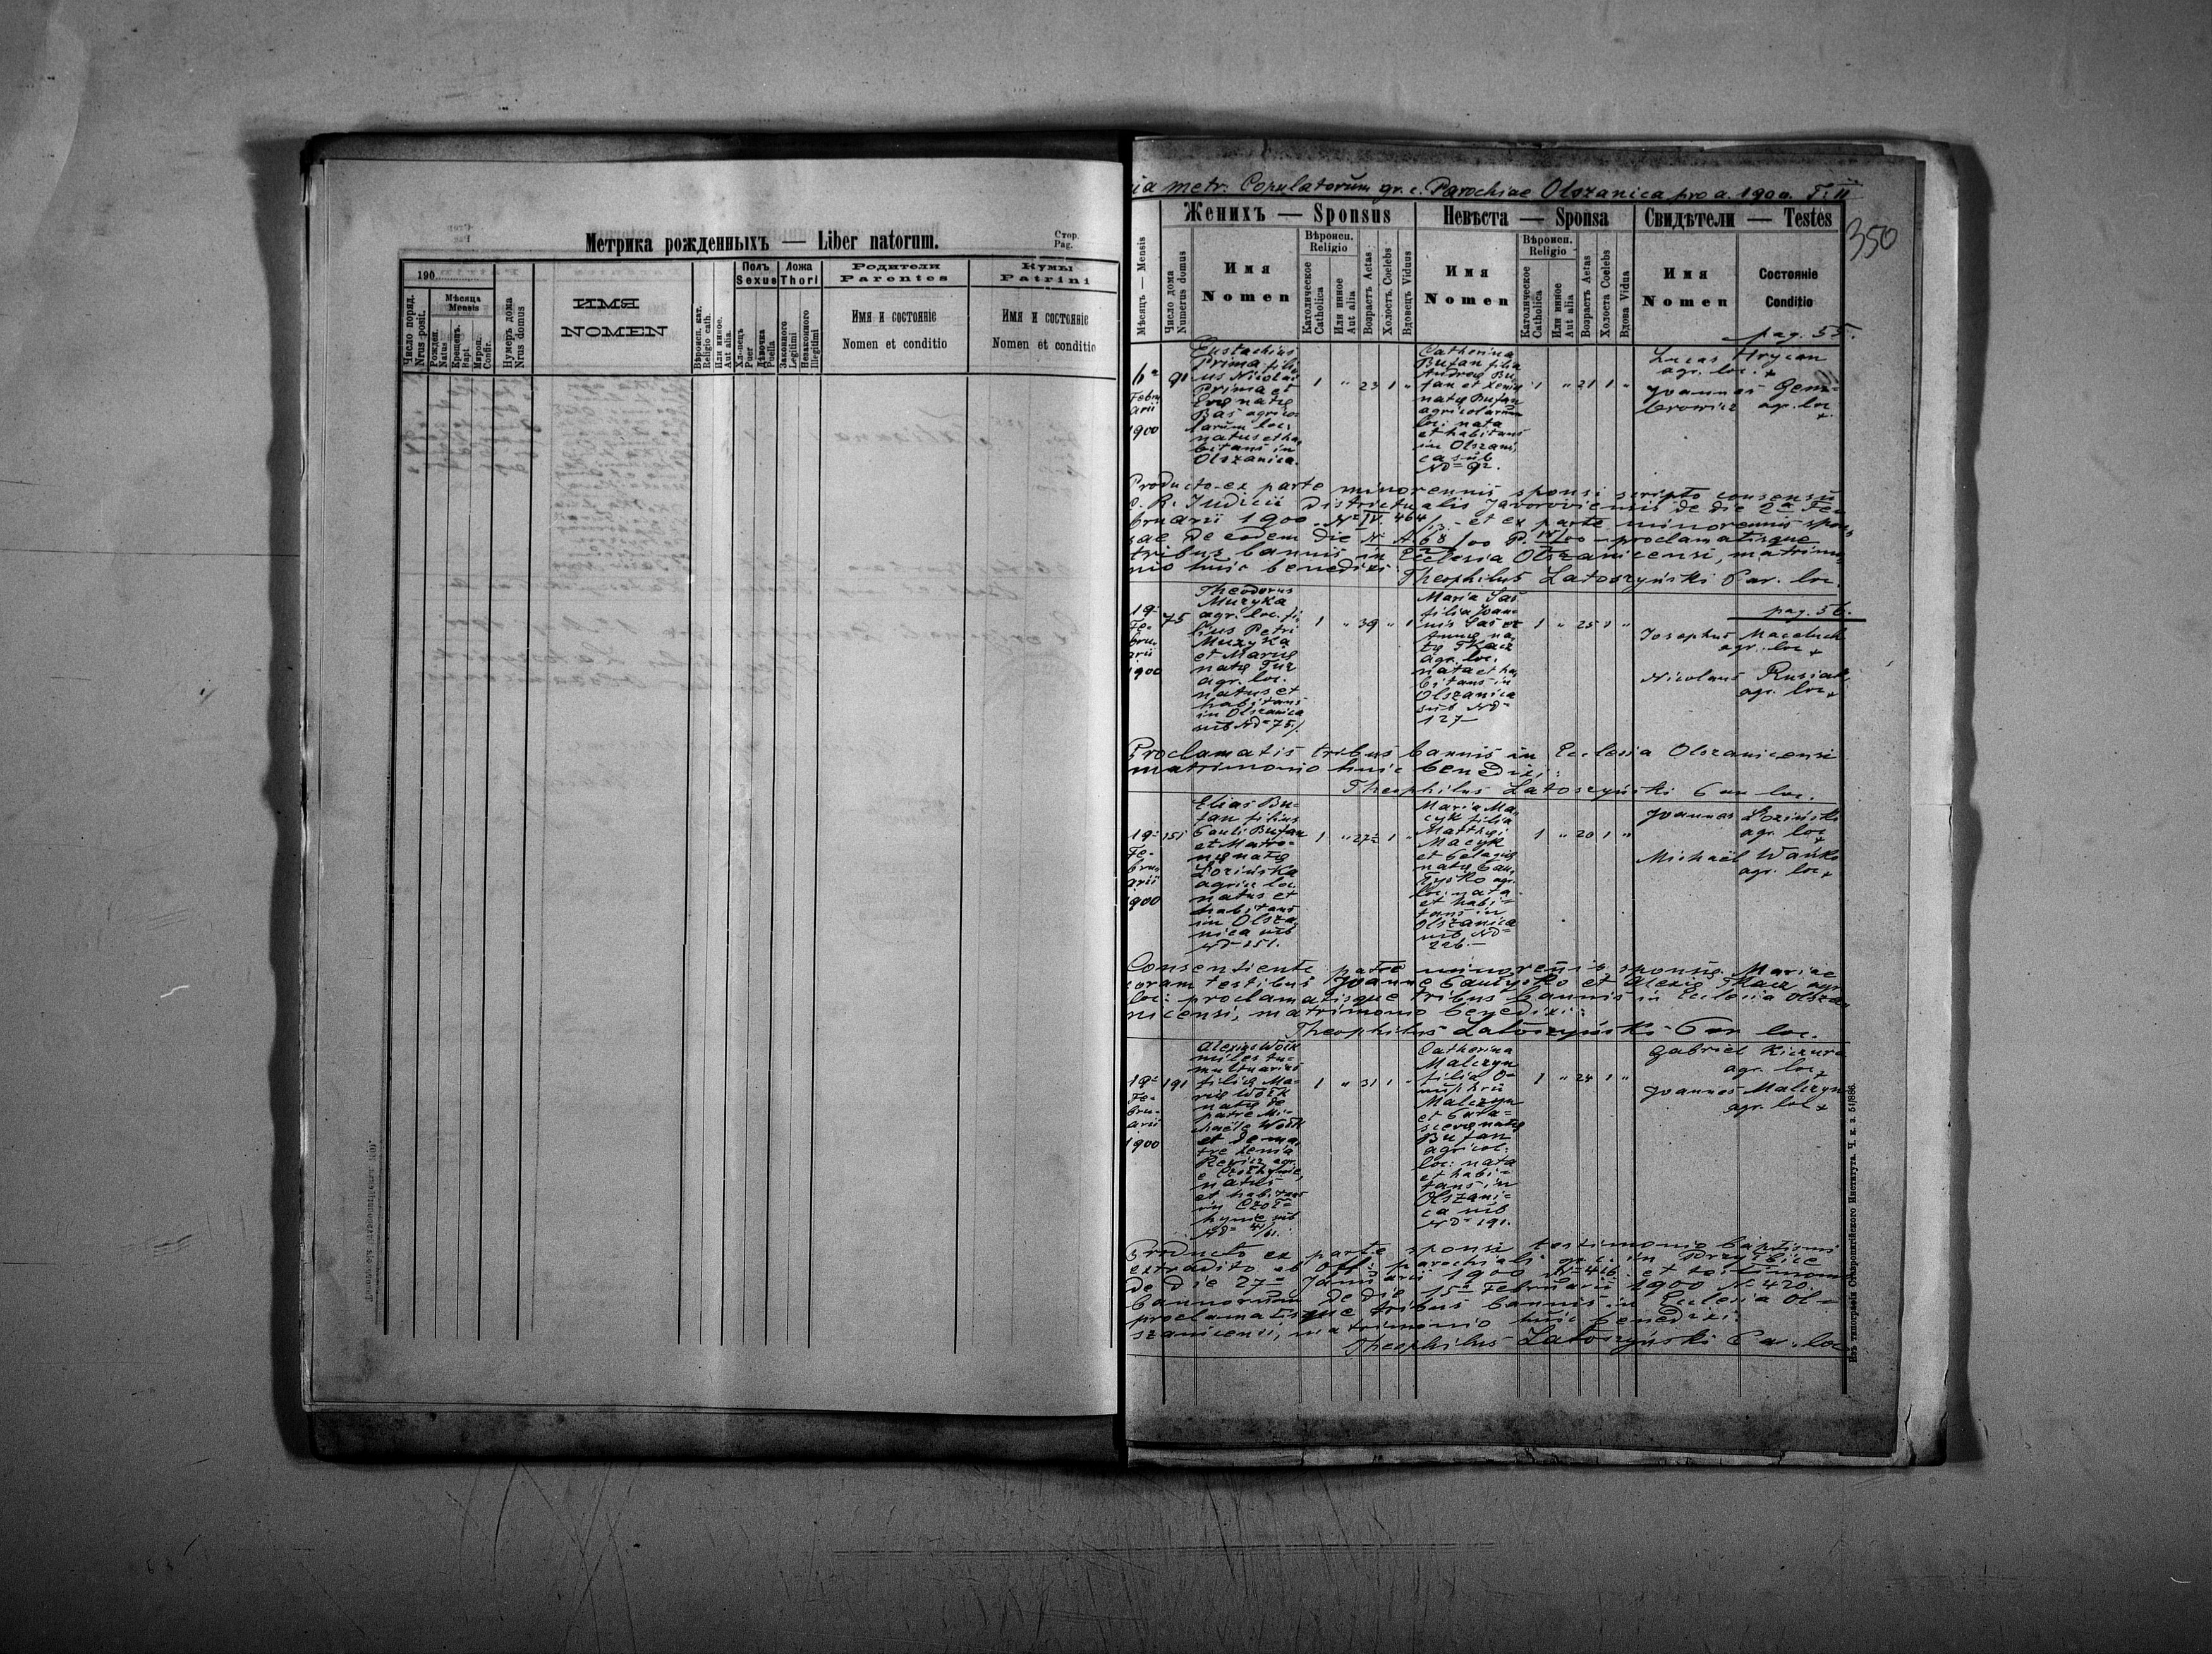 Метрика рожденныхъ — Liber natorum.
Стор.
Pag.
190
Число поряд.
Nrus posit.
Мѣсяца
Mensis
Рожден.
Natus
Крещенъ.
Bapt.
Мѵроп.
Confir.
Нумеръ дома
Nrus domus
ИМЯ
NOMEN
Вѣроисп. кат.
Religio cath.
Или иное.
Aut alia.
Полъ
Sexus
Хл-пецъ
Puer
Дѣвочка
Puella
Ложа
Thori
Законного
Legitimi
Незаконного
Illegitimi
Родители
Parentes
Имя и состояніе
Nomen et conditio
Кумы
Patrini
Имя и состояніе
Nomen et conditio
ia metr. Copulatorum gr. c. Parochiae Olszanica pro a. 1900. T. II
350
Женихъ — Sponsus
Невѣста — Sponsa
Свидѣтели — Testes
Мѣсяцъ — Mensis
Число дома
Numerus domus
Имя
Nomen
Вѣроисп.
Religio
Католическое
Catholica
Или иное
Aut alia
Возрастъ Aetas
Холостъ. Coelebs
Вдовецъ Viduus
Имя
Nomen
Вѣроисп.
Religio
Католическое
Catholica
Или иное
Aut alia
Возрастъ Aetas
Холоста Coelebs
Вдова Vidua
Имя
Nomen
Состояніе
Conditio
pag. 55.
6a
Febru
arii
1900
91
Eustachius
Prima fili
us Nicolai
Prima et
Evę natę
Baś agrico
larum loc:
natus et ha
bitans in
Olszanica.
1 " 23 1 "
Catherina
Bufan filia
Andreę Bu
fan et Xenię
natę Bufan
agricolarum
loc: nata
et habitans
in Olszani
ca sub
Nd= 92.
1 " 21 1 "
Lucas Hrycan
agr. loc. +
Joannes
agr. loc
+
Producto ex parte minorennis sponsi scripto consensu
C. R. Judicii Districtualis Javoroviensis de die 2a Fe
bruarii 1900 No IV. 464/ et ex parte minorennis spon
sae de eodem die N A 68/00 P. proclamatisque
tribus bannis in Ecclesia Olszanicensi, matrimo
nio huic benedixi: Theophilus Latoszyński Par. loc.
pag. 56.
19=
Fe=
bru=
arii
1900
75
Theodorus
Muzyka
agr. loc. fi
lius Petri
Muzyka
et Marię
natę Tuz
agr. loc.
natus et
habitans
in Olszanica
sub Nd= 75/
1 " 39 " 1
Maria Saś
filia Joan=
nis Saś et
Annę na
tę Tkacz
agr. loc.
nata et ha
bitans in
Olszanica
sub Nd=
127—
1 " 25 1 "
Josephus
agr. loc +
Nicolaus Rusiak
agr. loc +
Proclamatis tribus bannis in Ecclesia Olszanicensi
matrimonio huic benedixi:
Theophilus Latoszyński Par loc.
19=
Fe=
bru=
arii
1900
151
Elias Bu=
fan filius
Pauli Bufan
et Matro=
nę natę
Łozińska
agric. loc.
natus et
habitans
in Olsza
nica sub
Nd= 151.
1 " 27½ 1 "
Maria Ma
cyk filia
Matthei
Macyk
et Pelagię
natę
agr.
loc. nata
et habi=
tans in
Olszanica
sub Nd=
226.—
1 " 20 1 "
Joannes Łoziński
agr. loc
+
Michaël Wańko
agr. loc +
Consentiente patre minorennis sponsę Mariae
coram testibus Joanne et Alexio Tkacz agr
loc: proclamatisque tribus bannis in Ecclesia Olsza
nicensi, matrimonio benedixi:
Theophilus Latoszyński Par loc.
19=
Fe=
bru=
arii
1900
191
Alexius Wołk
miles tu=
multuarius
filius Ma=
rię Wołk
natę de
patre Mi=
chaële Wołk
et de ma
tre Xenia
agr.
natus
et habitans
in Czoł=
hynie sub
Nd= 41/61.
1 " 31 1 "
Catherina
Malczyn
filia O=
nuphrii
Malczyn
et Para=
scevę natę
Bufan
agricol.
loc: nata
et habi=
tans in
Olszani=
ca sub
Nd= 191.
1 " 24 1 "
Gabriel Kiczura
agr. loc
+
Joannes Malczyn
agr. loc +
Producto ex parte sponsi testimonio baptismi
extradito ab Off: parochiali gr. c. in Przyłbice
de die 27= Januarii 1900 N= 416 et testimonio
bannorum de die 15= Februarii 1900 N= 420
proclamatisque tribus bannis in Ecclesia Ol=
szanicensi, matrimonio huic benedixi:
Theophilus Latoszyński Par. loc
Изъ типографіи Ставропигійского Института. Ч. к. з. 51/886.